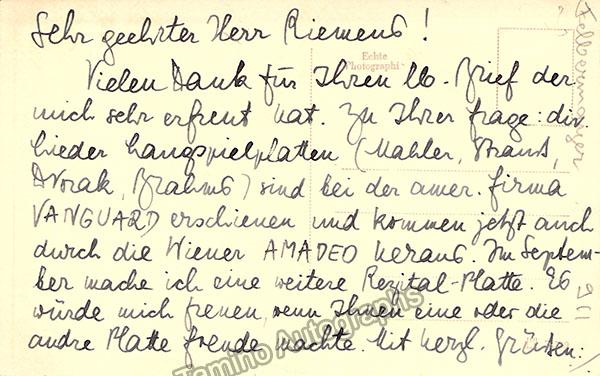 Sehr geehrter Herr Riemens!
Echte
Photographie
Vielen Dank für Ihren lb. Brief der
mich sehr erfreut hat. Zu Ihrer Frage: div.
Lieder Langspielplatten (Mahler, Strauß,
Dvorak, Brahms) sind bei der amer. Firma
VANGUARD erschienen und kommen jetzt auch
durch die Wiener AMADEO heraus. Im Septem-
ber mache ich eine weitere Rezital-Platte. Es
würde mich freuen, wenn Ihnen eine oder die
andre Platte Freude machte. Mit herzl. Grüßen:
Felbermayer
Tamino Autographs